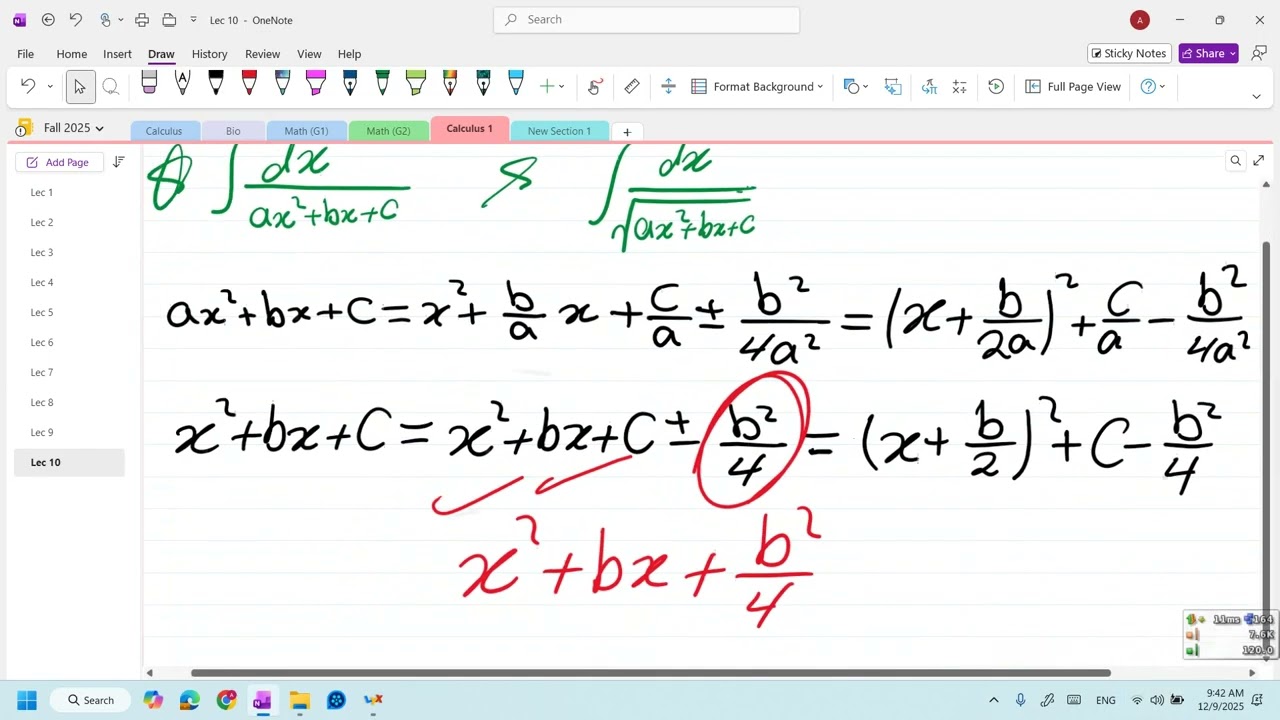 Lec 10 - OneNote
Search
A
File Home Insert Draw History Review View Help
Sticky Notes Share
Format Background Full Page View
Fall 2025 Calculus Bio Math (G1) Math (G2) Calculus 1 New Section 1 +
Add Page
Lec 1
Lec 2
Lec 3
Lec 4
Lec 5
Lec 6
Lec 7
Lec 8
Lec 9
Lec 10
∫ dx / (ax²+bx+c) & ∫ dx / √(ax²+bx+c)
ax²+bx+c = x² + b/a x + c/a ± b²/4a² = (x + b/2a)² + c/a − b²/4a²
x²+bx+c = x²+bx+c ± b²/4 = (x + b/2)² + c − b²/4
x² + bx + b²/4
11ms 164
7.6K
120.0
Search
ENG
9:42 AM
12/9/2025